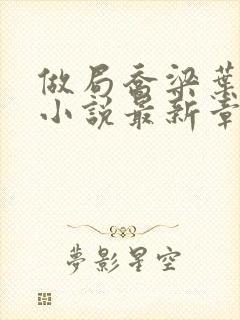 做局喬梁葉
小說最新章
夢影星空